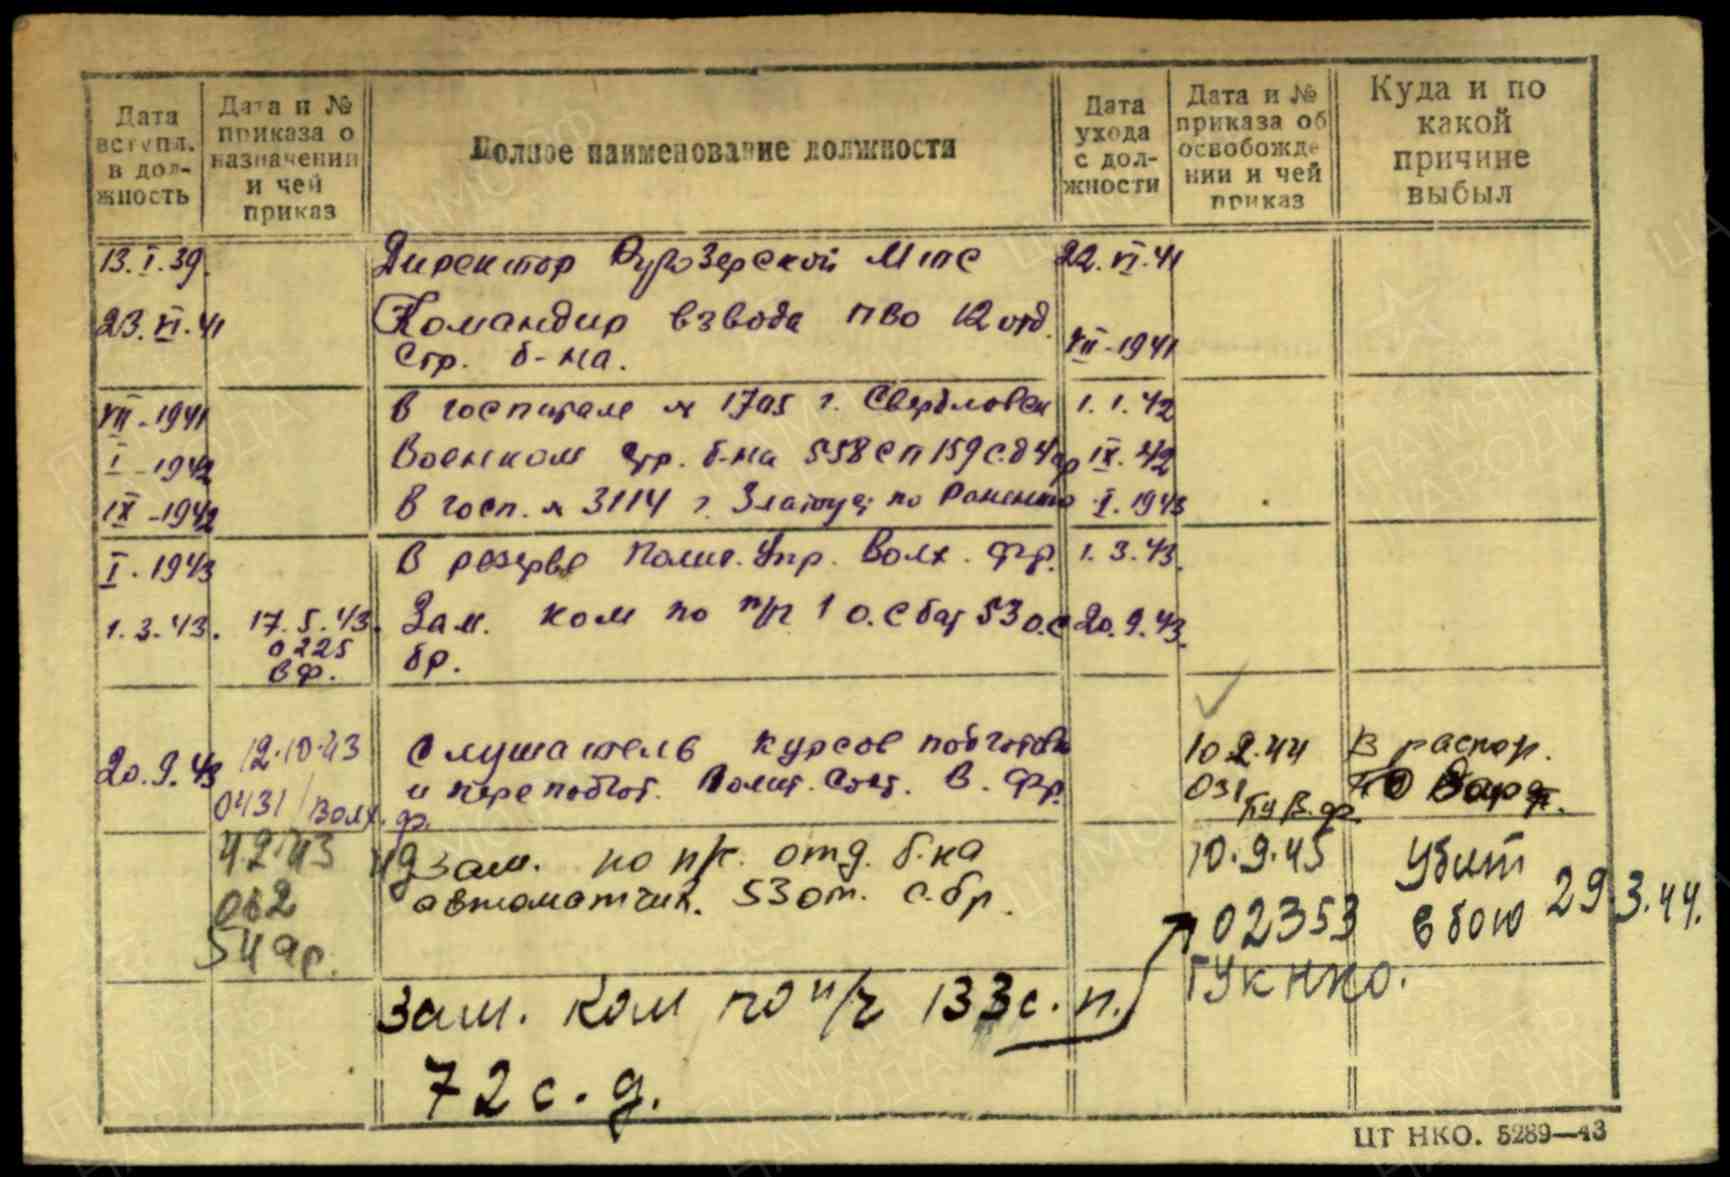 Дата вступл. в дол-жность
Дата и № приказа о назначении и чей приказ
Полное наименование должности
Дата ухода с дол-жности
Дата и № приказа об освобожде нии и чей приказ
Куда и по какой причине выбыл
13.I.39 Директор МТС 22.VI.41
23.VI.41 Командир взвода ПВО 12 отд.
стр. б-на. VII-1941
VII-1941 В госпитале № 1705 г. Свердловск 1.1.42
I-1942 Военком стр. б-на 558 сп 159 с.д 4 ар IX.42
IX-1942 В госп. № 3114 г. Златоуст по Ранению I.1943
I.1943 В резерве Полит. Упр. Волх. фр. 1.3.43.
1.3.43. 17.5.43. Зам. ком по п/ч 1 о.с бат 53 о.с 20.9.43.
0225 бр.
вф.
20.9.43 12.10.43 Слушатель курсов подготовки 10.2.44 В распор.
0431/Волх.ф. и переподгот. Полит. Сост. В. Фр. 031 ПУ В.ф.
4.2.43 зам. по п/ч. отд. б-на 10.9.45 Убит
062 автоматчик. 53 от. с.бр. 02353 в бою 29.3.44.
54 ар. ГУК НКО.
Зам. ком по п/ч 133 с.п.
72 с.д.
ЦТ НКО. 5289—43